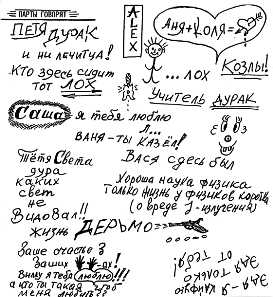 ПАРТЫ ГОВОРЯТ
ПЕТЯ ДУРАК
и ни личитца!
КТО здесь сидит
тот ЛОХ
ALEX
АНЯ+КОЛЯ=
я ... ЛОХ
КОЗЛЫ!
Учитель ДУРАК
Саша я тебя люблю
Л...
ВАНЯ-ТЫ КАЗЁЛ!
Тётя Света
дура
каких
свет
не
Видовал!!
Вася сдесь был
Хороша наука физика
Только жизнь у физиков коротка
(о вреде γ-излучения)
жизнь ДЕРЬМО
Ваше счастье в
Ваших
Вилку я тебя люблю!!!
а кто ты такой
меня любить